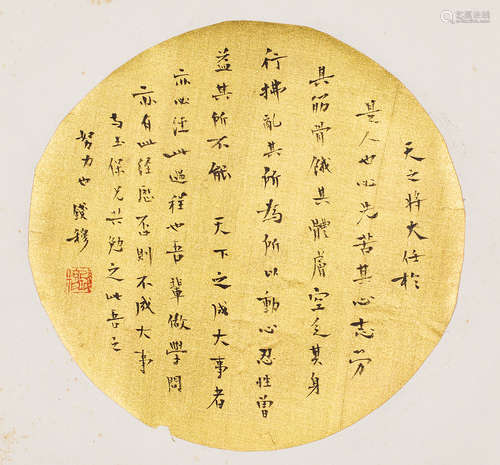 天之將大任於
是人也必先苦其心志勞
其筋骨餓其體膚空乏其身
行拂亂其所為所以動心忍性曾
益其所不能 天下之成大事者
亦必經此過程也吾輩做學問
亦有此經歷否則不成大事
與玉保兄共勉之此吾之
努力也 錢穆